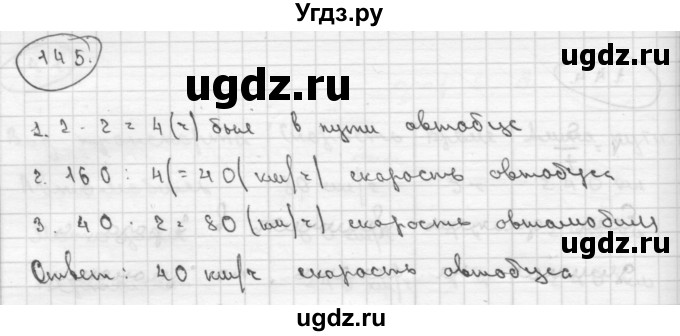 Угдз.ру
ugdz.ru
145.
ugdz.ru
ugdz.ru
1. 2 · 2 = 4 (ч) был в пути автобус
2. 160 : 4 (= 40 (км/ч) скорость автобуса
3. 40 · 2 = 80 (км/ч) скорость автомобиля
ugdz.ru
Ответ: 40 км/ч скорость автобуса
ugdz.ru
ugdz.ru